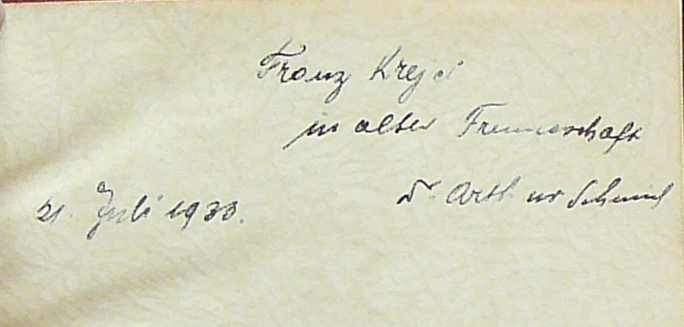 Franz Krejci
in alter Freundschaft
Dr. Arthur Schmid
21. Juli 1933.